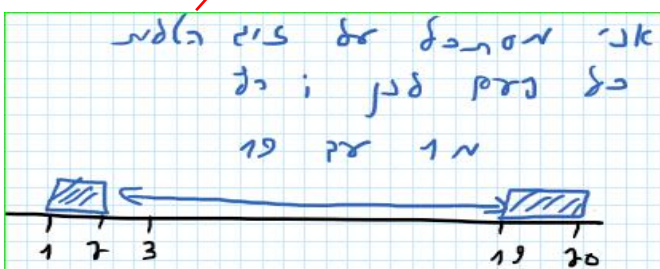 אני מסתכל על זוג הלמת
כל פעם לבן i וכל
מ 1 עד 19
1 2 3 19 20